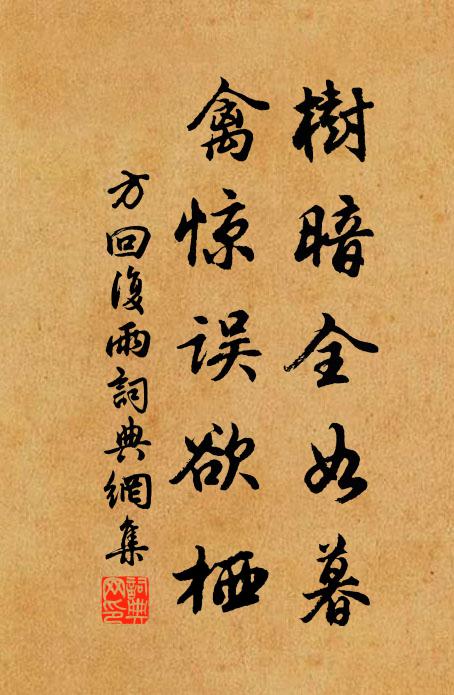 樹暗全如暮
禽惊误欲栖
方回復雨詞典網集
詞典网印